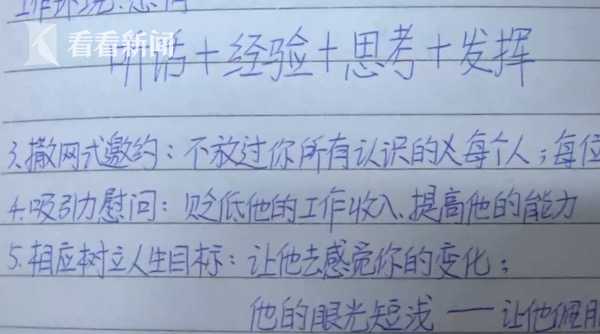 看看新闻
听话+经验+思考+发挥
3.撒网式邀约：不放过你所有认识的每个人；每位
4.吸引力慰问：贬低他的工作收入、提高他的能力
5.相应树立人生目标：让他去感觉你的变化；
他的眼光短浅——让他佩服